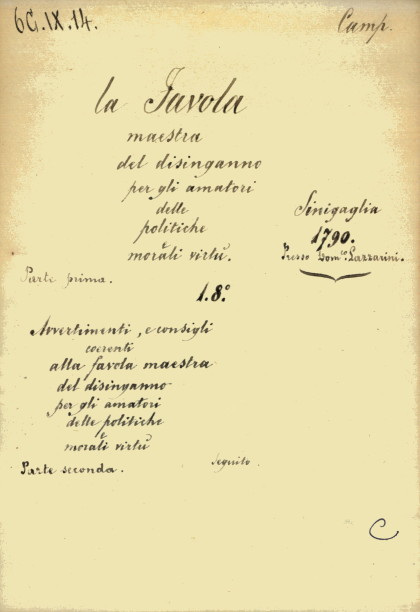 6G.IX.14.
Camp.
la Favola
maestra
del disinganno
per gli amatori
delle
politiche
e
morali virtù.
Sinigaglia
1790.
Presso Domco. Lazzarini.
Parte prima.
1.8.°
Avvertimenti, e consigli
coerenti
alla favola maestra
del disinganno
per gli amatori
delle politiche
e
morali virtù
Parte seconda.
seguito.
C